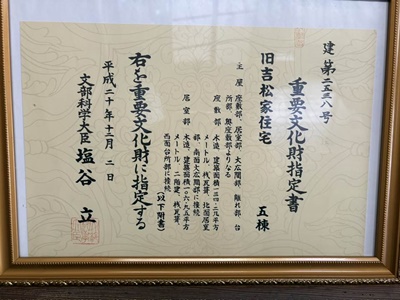 建第二五三八号
重要文化財指定書
旧吉松家住宅 五棟
主屋 座敷部、居室部、大広間部、離れ部、台
所部、奥座敷部よりなる
座敷部 木造、建築面積一三四・二九平方
メートル、桟瓦葺、北面居室
部、南面大広間部に接続
居室部 木造、建築面積一〇六・九五平方
メートル、二階建、桟瓦葺、
西面台所部に接続
(以下附書)
右を重要文化財に指定する
平成二十年十二月二日
文部科学大臣 塩谷 立